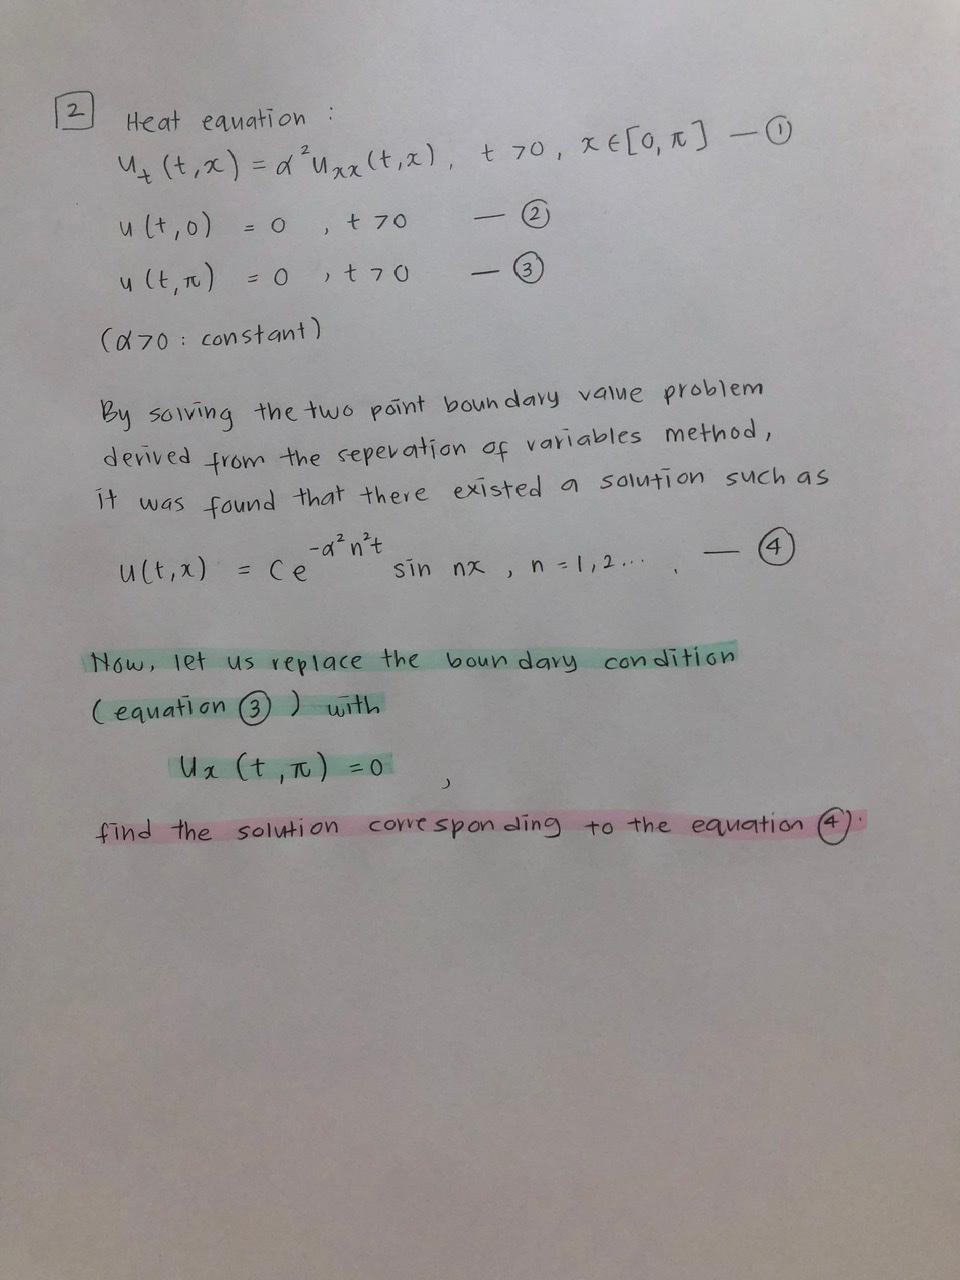 2 Heat equation :
u_t (t,x) = α² u_xx (t,x), t > 0, x ∈ [0, π] — ①
u (t,0) = 0 , t > 0 — ②
u (t,π) = 0 , t > 0 — ③
(α > 0 : constant)
By solving the two point boundary value problem
derived from the seperation of variables method,
it was found that there existed a solution such as
u(t,x) = C e^{-α² n² t} sin nx , n = 1, 2 ... . — ④
Now, let us replace the boundary condition
( equation ③ ) with
u_x (t, π) = 0 ,
find the solution corresponding to the equation ④.